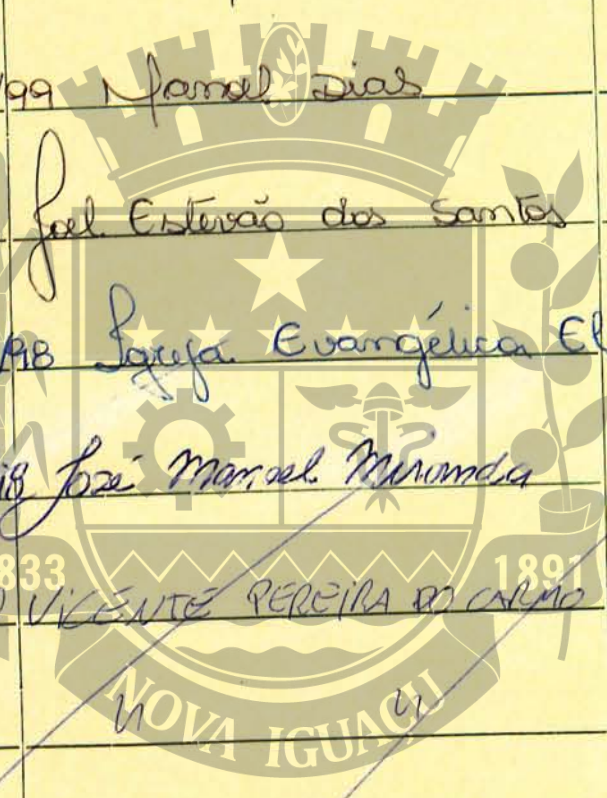 /99 Manoel Dias
Joel Estevão dos Santos
/98 Igreja Evangélica El
José Manoel Miranda
833 1891
VICENTE PEREIRA DO CARMO
" "
NOVA IGUAÇU